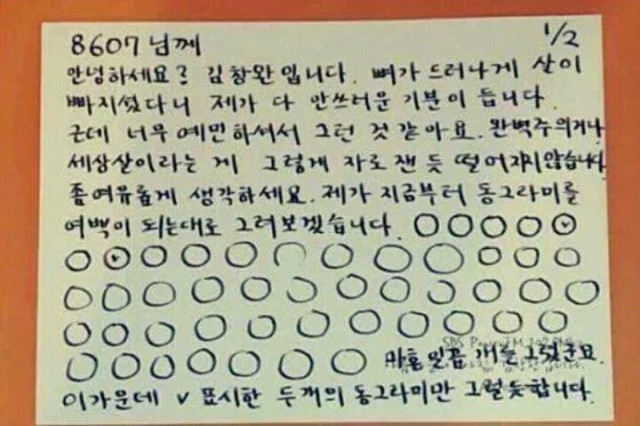 8607님께 1/2
안녕하세요? 김창완입니다. 뼈가 드러나게 살이
빠지셨다니 제가 다 안쓰러운 기분이 듭니다.
근데 너무 예민하셔서 그런 것 같아요. 완벽주의거나
세상살이라는 게 그렇게 자로 잰 듯 떨어지지않습니다.
좀여유롭게 생각하세요. 제가 지금부터 동그라미를
여백이 되는대로 그려보겠습니다.
SBS
마흔일곱 개를 그렸군요.
이가운데 v 표시한 두개의 동그라미만 그럴듯합니다.